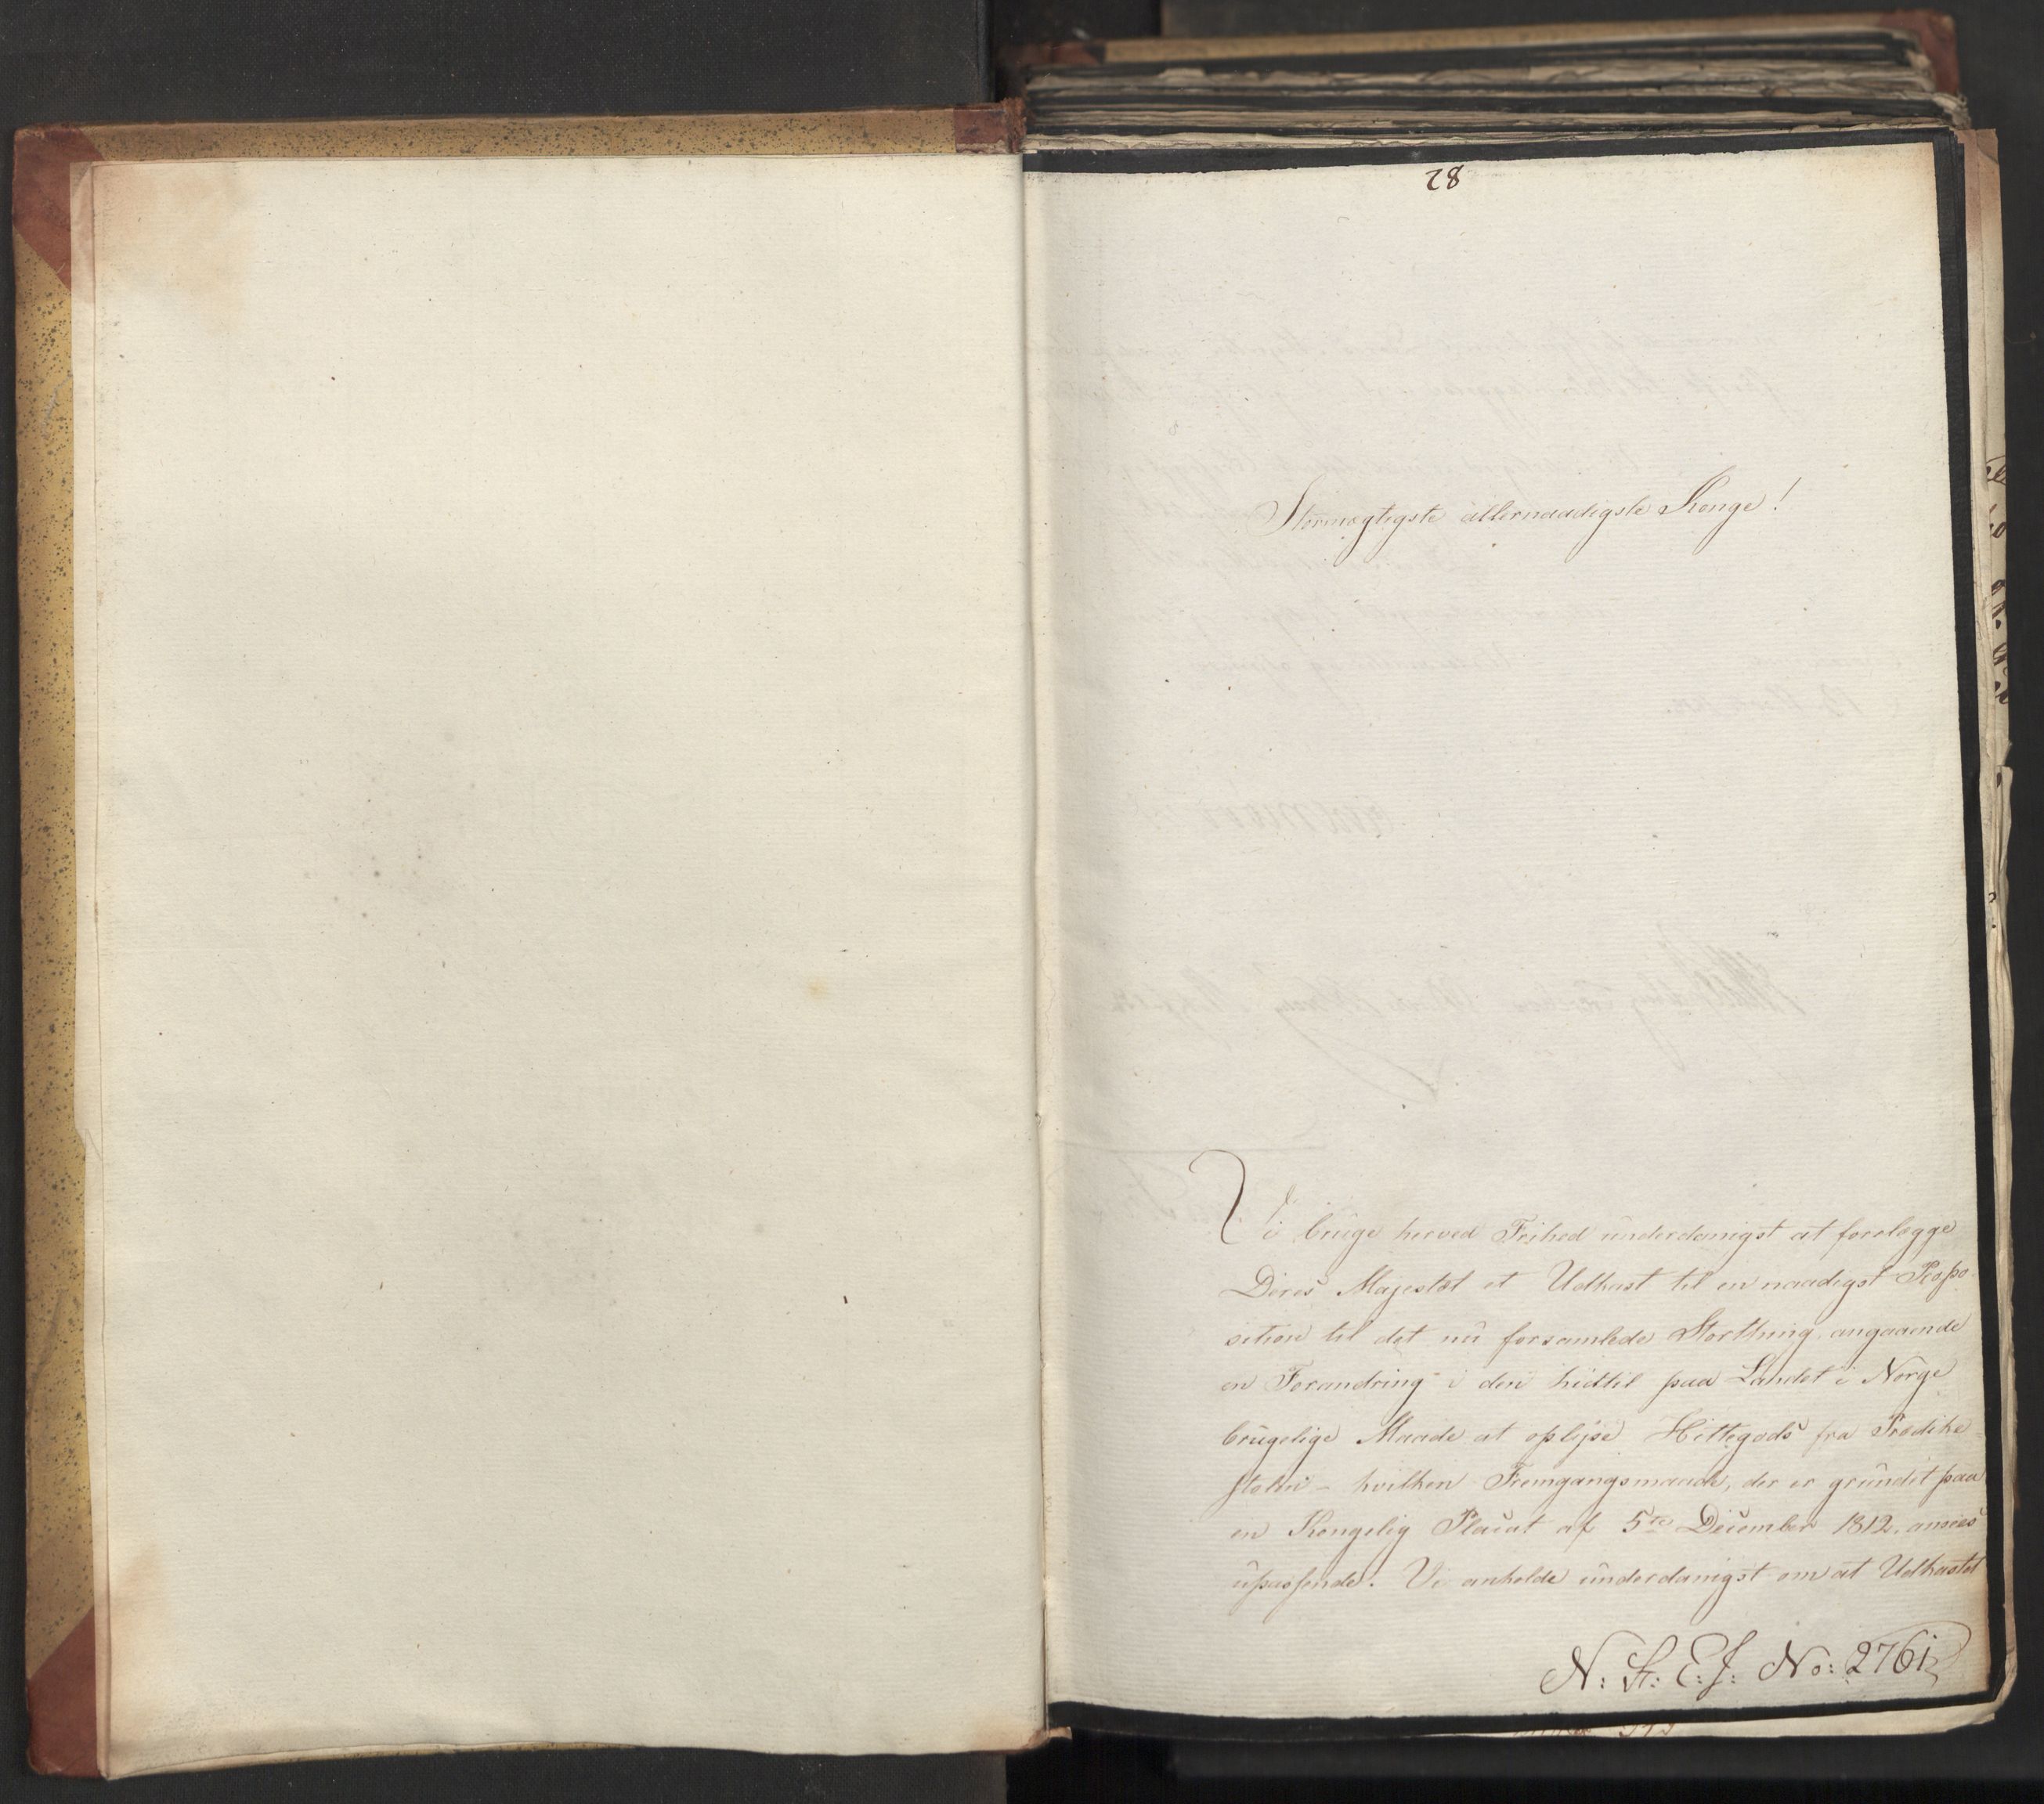 28
Stormægtigste allernaadigste Konge!
Vi bruge herved Frihed underdanigst at forelægge
Deres Majestæt et Udkast til en naadigst Propo-
sition til det nu forsamlede Storthing angaaende
en Forandring i den hidtil paa Landet i Norge
brugelige Maade at oplyse Hittegods fra Prædike-
stolen - hvilken Fremgangsmaade, der er grundet paa
en Kongelig Placat af 5te December 1812. ansees
upassende. Vi anholde underdanigst om at Udkastet
N: St: E: J: No: 2761